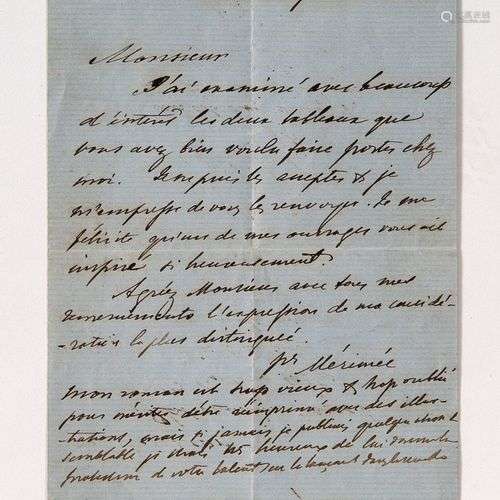 Monsieur
J'ai examiné avec beaucoup
d'intérêt les deux tableaux que
vous avez bien voulu faire porter chez
moi. Je ne puis les accepter & je
m'empresse de vous les renvoyer. Je me
félicite qu'un de mes ouvrages vous ait
inspiré si heureusement.
Agréez Monsieur avec tous mes
remerciements l'expression de ma considé-
-ration la plus distinguée.
Pr Mérimée
mon roman est trop vieux & trop oublié
pour mériter d'être réimprimé avec des illus-
-trations, mais si jamais je publiais quelque chose de
semblable je serais très heureux de lui
protection de votre talent sur le